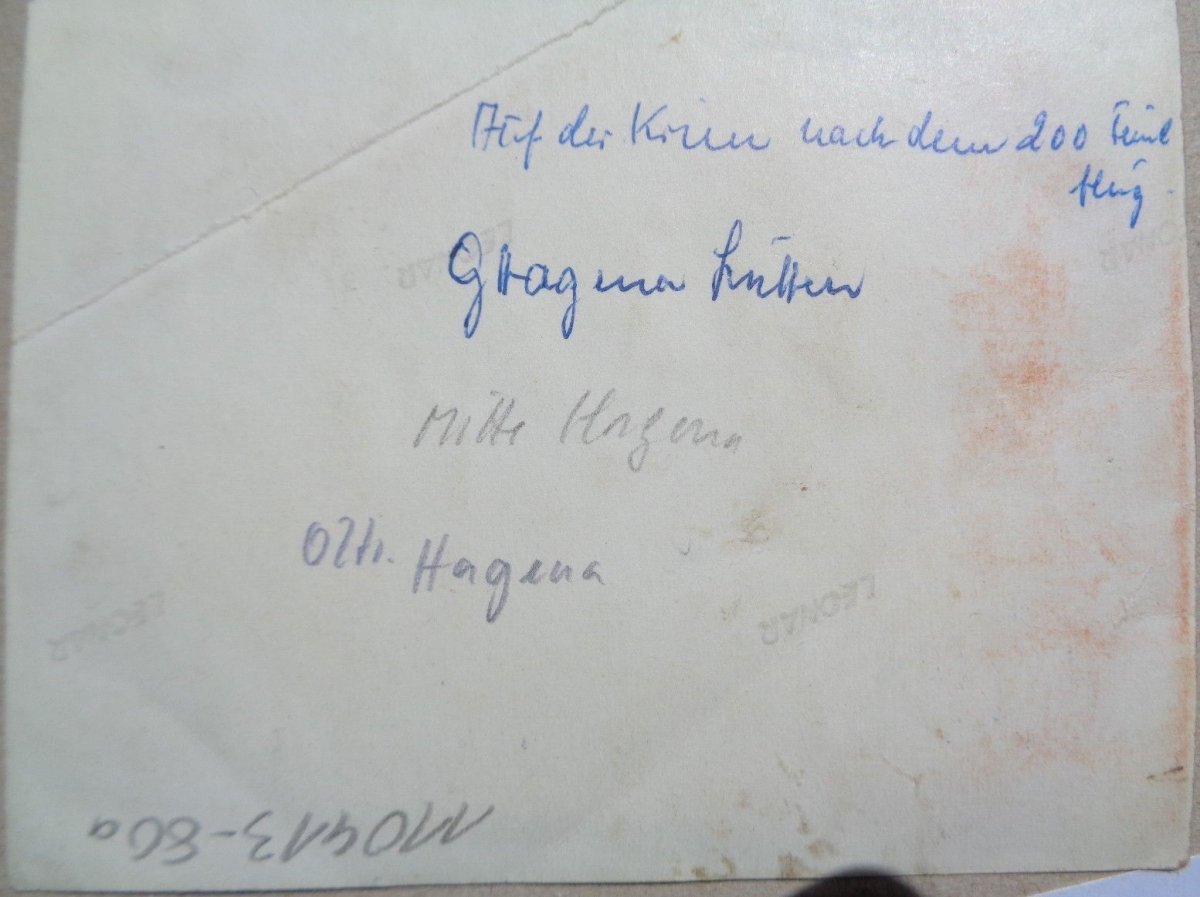 Auf der Krim nach dem 200 Feind
flug.
Hagena Lütten
Mitte Hagena
Oltn. Hagena
LEONAR
LEONAR
LEONAR
LEONAR
110413-80a